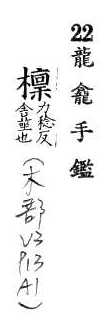 22龍龕手鑑
檁 力稔反
舍也
(木部 V3 P13 A1)